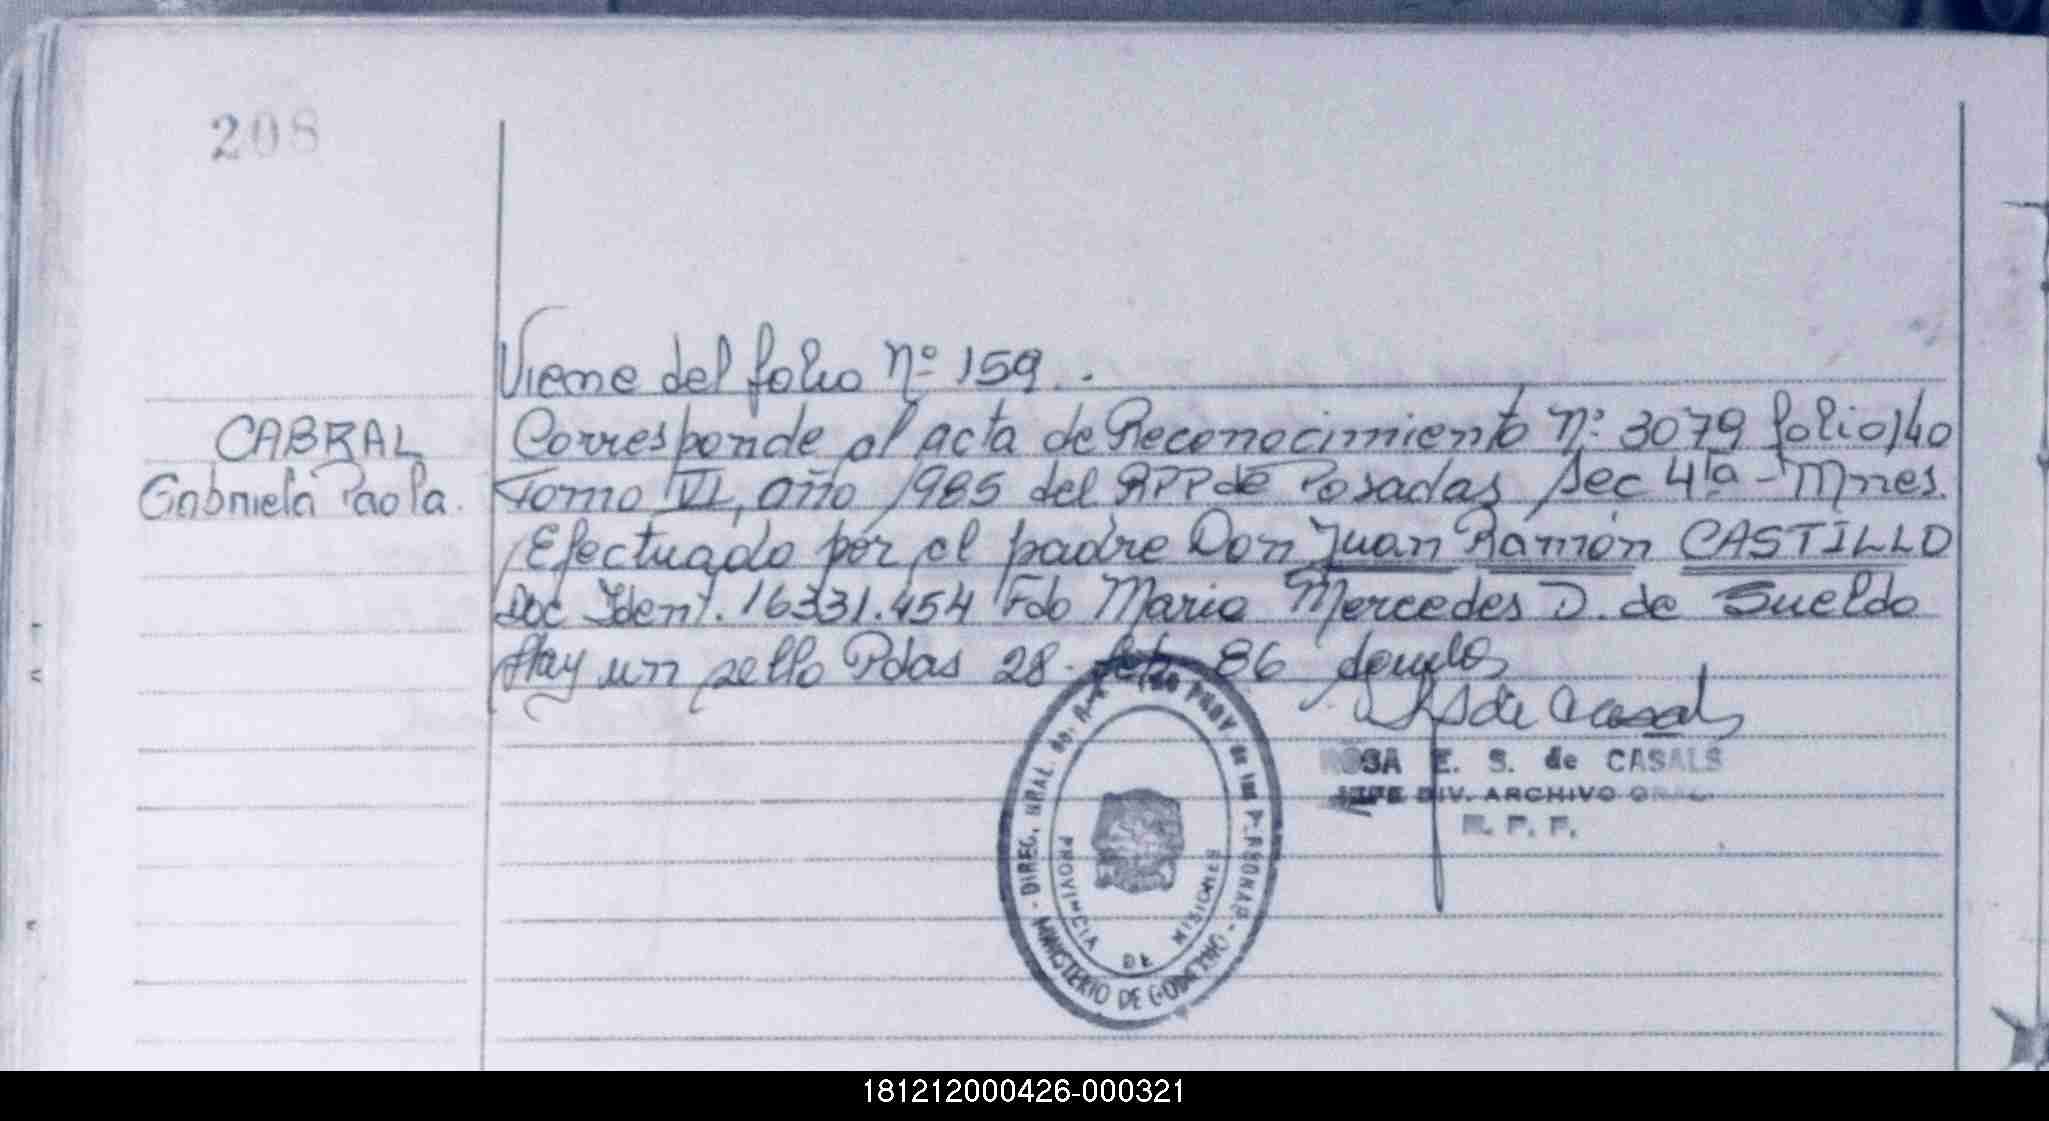 208
Viene del folio Nº 159.
CABRAL
Gabriela Paola.
Corresponde al acta de Reconocimiento Nº 3079 folio 140
Tomo VI, año 1985 del RPP de Posadas Sec 4ta - Mnes.
Efectuado por el padre Don Juan Ramón CASTILLO
Doc Ident. 16331.454 Fdo Maria Mercedes D. de Sueldo
Hay un sello Pdas 28 feb 86
de Casals
ROSA E. S. de CASALS
JEFE DIV. ARCHIVO GRAL.
R. P. P.
DIREC. GRAL. de las PERSONAS - MINISTERIO DE GOBIERNO -
PROVINCIA DE MISIONES
181212000426-000321